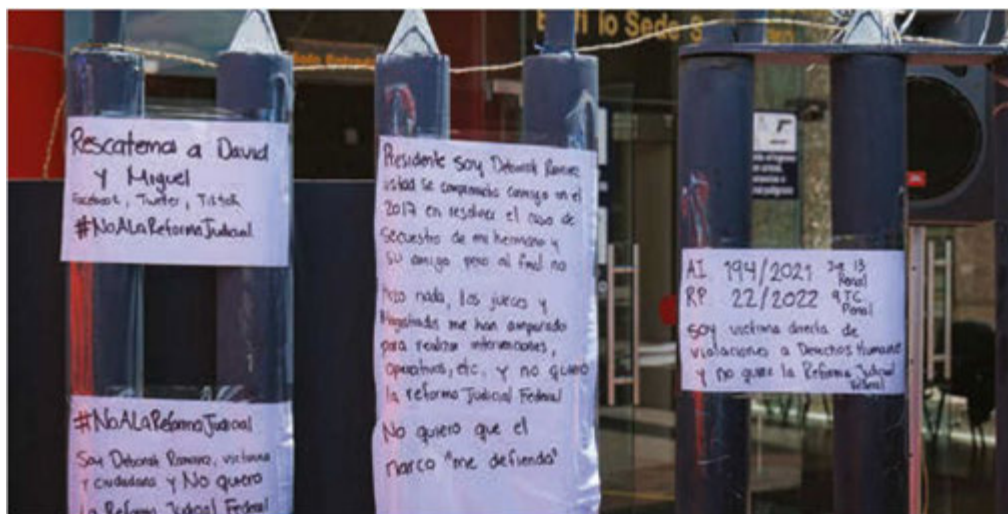 Rescatemos a David
y Miguel
Facebook, Twitter, Tiktok
#NoALaReformaJudicial
#NoALaReformaJudicial
Soy Déborah Ramírez, victima
y ciudadana y No quiero
la Reforma Judicial Federal
Presidente soy Déborah Ramírez
usted se comprometió conmigo en el
2017 en resolver el caso de
secuestro de mi hermano y
su amigo pero al final no
hizo nada, los jueces y
Magistrados me han amparado
para realizar intervenciones,
operativos, etc. y no quiero
la reforma Judicial Federal
No quiero que el
narco "me defienda"
AI 194/2021 13
Penal
RP 22/2022 9 TC
Penal
soy victima directa de
violaciones a Derechos Humanos
y no quiero la Reforma Judicial
Federal
lo Sede S
JBL